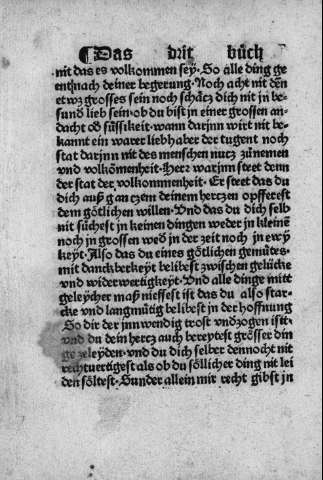 ¶ Das drit büch
nit das es volkommen sey. So alle ding ge
ent nach deiner begerung. Noch acht nit den̄
etwz grosses sein noch schäcz dich nit jn be-
sund lieb sein. ob du bist jn einer grossen an-
dacht od̕ süssikeit. wann darjnn wirt nit be-
kannt ein warer liebhaber der tugent noch
stat darjnn nit des menschen nucz zůnemen
vnd volkōmenheit. Herr warjnn steet denn
der stat der volkommenheit. Er steet das du
dich auß ganczem deinem herczen opfferest
dem götlichen willen. Vnd das du dich selb
nit süchest jn keinen dingen weder jn kleinē
noch jn grossen wed̕ jn der zeit noch jn ewig
keyt. Also das du eines götlichen gemütes.
mit danckberkeyt belibest zwischen gelücke
vnd widerwertigkeyt. Vnd alle dinge mitt
geleycher maß niessest ist das du also star-
cke vnd langmütig belibest jn der hoffnung
So dir der jnnwendig trost vndzogen istt.
vnd du dein hercz auch bereytest grösser din
ge zeleyden. vnd du dich selber dennocht nit
rechtuertigest als ob du söllicher ding nit lei
den söltest. Sunder allein mir recht gibst jn